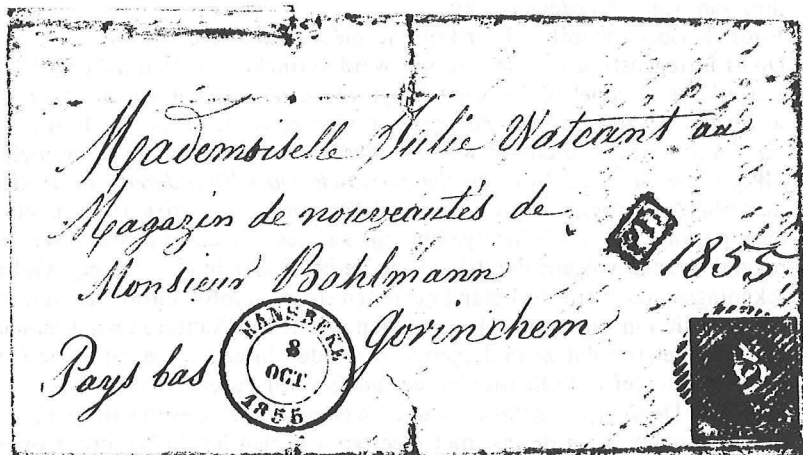 Mademoiselle Julie Watcant au
Magazin de nouveautés de
PD
1855.
Monsieur Bohlmann
Gorinchem
Pays bas
HANSBEKE
8
OCT.
1855